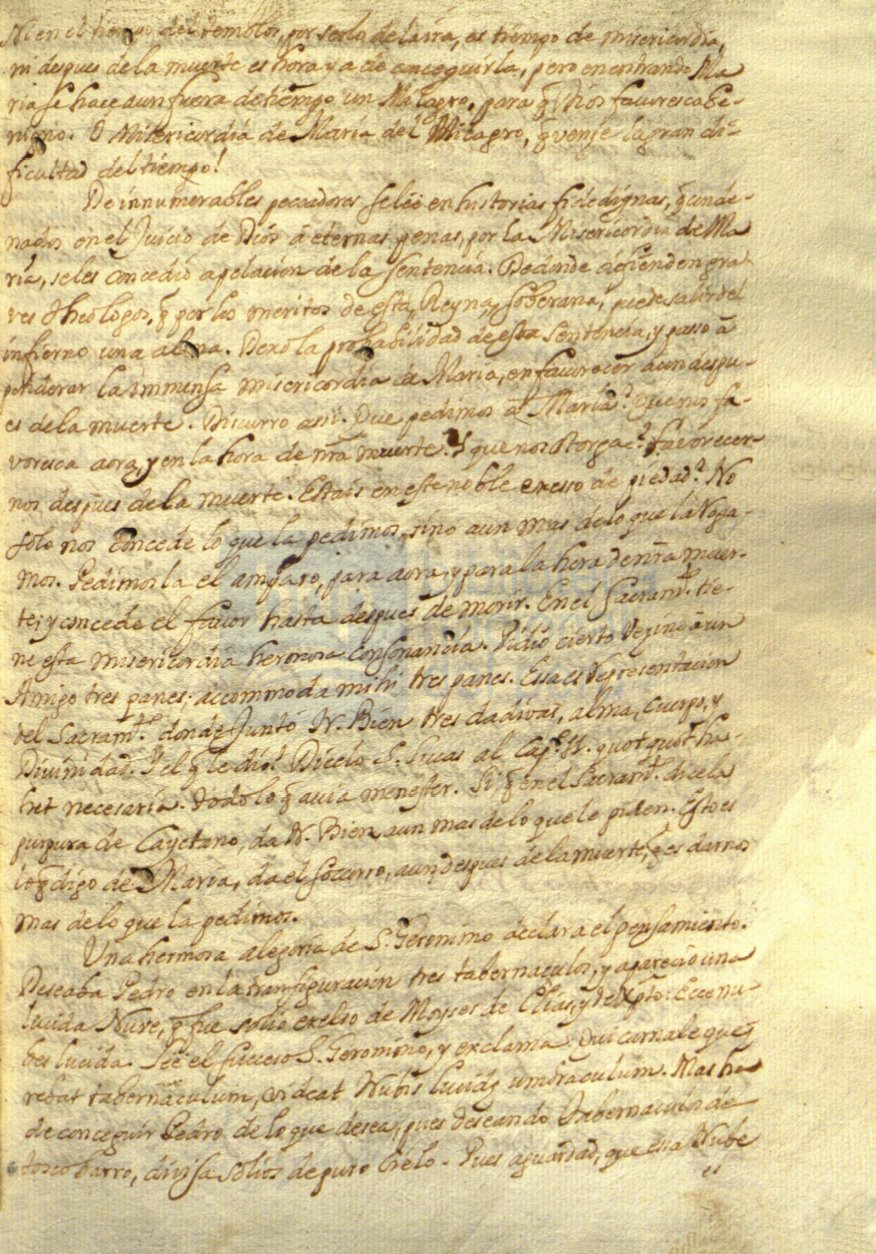 Ni en el tiempo del temblor, por serlo de la ira, es tiempo de misericordia,
ni despues de la muerte es hora ya de conceguirla, pero en entrando Ma
ria se hace aun fuera de tiempo un Milagro, para q̃ Dios favoresca be-
nigno. O Misericordia de Maria del Milagro, q̃ venje la gran di-
ficultad del tiempo!
De innumerables peccadores se leè en historias fidedignas, q̃ conde-
nados en el Juicio de Dios à eternas penas, por la Misericordia de Ma
ria, se les concediò apelacion de la sentencia. De donde defienden gra-
ves theologos, q̃ por los meritos de esta Reyna, y soberana, puede salir del
infierno una alma. Dexo la probabilidad de esta sentencia, y passo à
ponderar la immensa misericordia de Maria, en favorecer aun despu-
es de la muerte. Discurro assi. Que pedimos à Maria? Que nos fa-
voresca aora, y en la hora de nr̃a muerte. Y que nos otorga? favorecer
nos despues de la muerte. Estais en este noble excesso de piedad? No
solo nos concede lo que la pedimos, sino aun mas de lo que la roga-
mos. Pedimosla el amparo, para aora, y para la hora de nr̃a muer-
te; y concede el favor hasta despues de morir. En el Sacramᵗᵒ tie-
ne esta misericordia hermosa consonancia. Pidiò cierto vezino à un
Amigo tres panes; accommoda mihi tres panes. Essa es representacion
del Sacramᵗᵒ donde juntò N. Bien tres dadivas, alma, cuerpo, y
Divinidad. Y el q̃ le diò? Dicelo S. Lucas al Capᵒ 11. quotquot ha-
bet necesaria. todo lo q̃ avia menester. Si, q̃ en el Sacramᵗᵒ dice la
purpura de Cayetano, da N. Bien aun mas de lo que le piden. Esto es
lo q̃ digo de Maria, da el socorro, aun despues de la muerte, q̃ es darnos
mas de lo que la pedimos.
Una hermosa alegoria de S. Geronimo declara el pensamiento.
Deseaba Pedro en la transfiguracion tres tabernaculos, y apareciò una
lucida Nuve, q̃ fue solio excelso de Moyses de Elias, y de Xp̃to: Ecce nu-
bes lucida. Leè el sucesso S. Geronimo, y exclama. Qui carnale quę-
rebat tabernaculum, videat Nubis lucidę umbraculum. Mas ha
de conceguir Pedro de lo que desea, pues deseando tabernaculos de
tosco barro, divisa solios de puro Cielo. Pues aguardad, que essa Nube